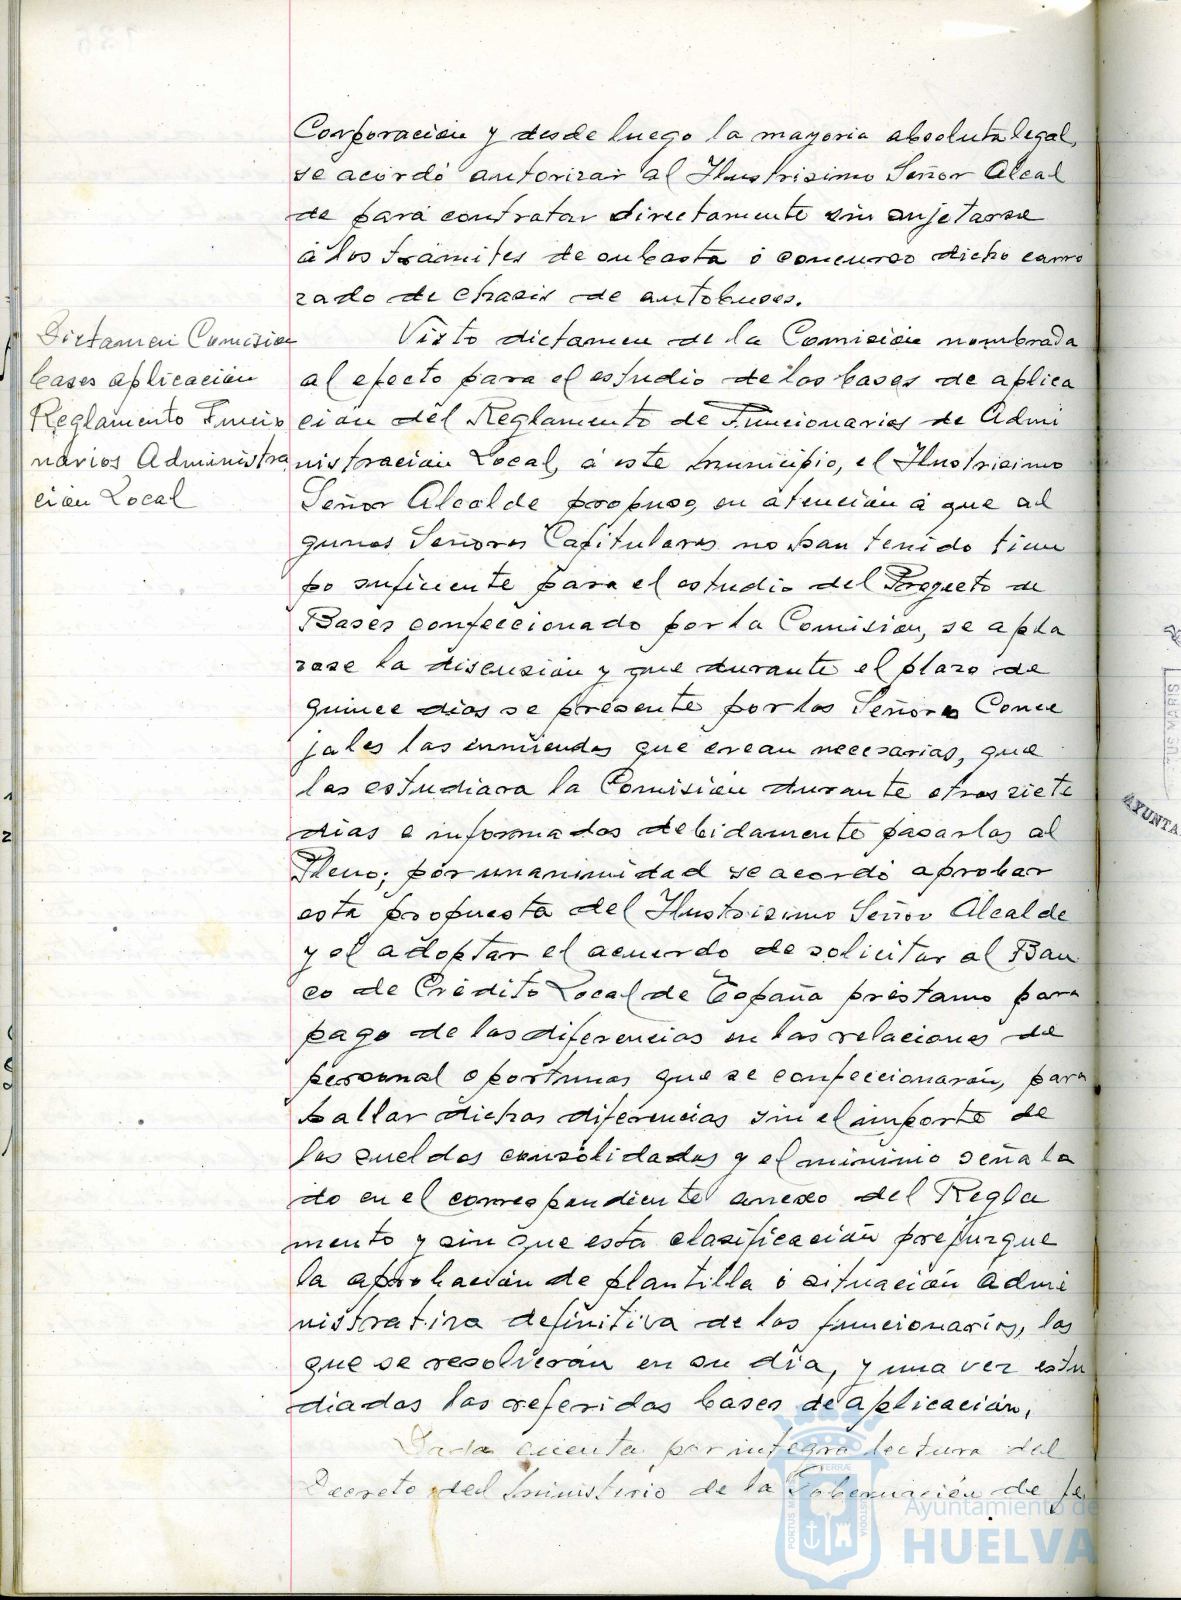 Corporación y desde luego la mayoria absoluta legal,
se acordó autorizar al Ilustrisimo Señor Alcal
de para contratar directamente sin sujetarse
á los trámites de subasta ó concurso dicho carro
zado de chasis de autobuses.
Dictamen Comisión
bases aplicación
Reglamento Funcio
narios Administra
ción Local
Visto dictamen de la Comisión nombrada
al efecto para el estudio de las bases de aplica
ción del Reglamento de Funcionarios de Admi
nistración Local, á este municipio, el Ilustrisimo
Señor Alcalde propuso, en atención á que al
gunos Señores Capitulares no han tenido tiem
po suficiente para el estudio del Proyecto de
Bases confeccionado por la Comisión, se apla
zase la discusión y que durante el plazo de
quince dias se presente por los Señores Conce
jales las enmiendas que crean necesarias, que
las estudiara la Comisión durante otros siete
dias e informados debidamente pasarlas al
Pleno; por unanimidad se acordó aprobar
esta propuesta del Ilustrisimo Señor Alcalde
y el adoptar el acuerdo de solicitar al Ban
co de Crédito Local de España préstamo para
pago de las diferencias en las relaciones de
personal oportunas que se confeccionarán, para
hallar dichas diferencias sin el importe de
los sueldos consolidados y el minimo señala
do en el correspondiente anexo del Regla
mento y sin que esta clasificación prejuzgue
la aprobación de plantilla ó situación admi
nistrativa definitiva de los funcionarios, las
que se resolverán en su dia, y una vez estu
diadas las referidas bases de aplicación.
Dada cuenta por integra lectura del
Decreto del Ministerio de la Gobernación de fe
Ayuntamiento de
HUELVA
PORTUS MARIS
TERRÆ
CUSTODIA
AYUNTA